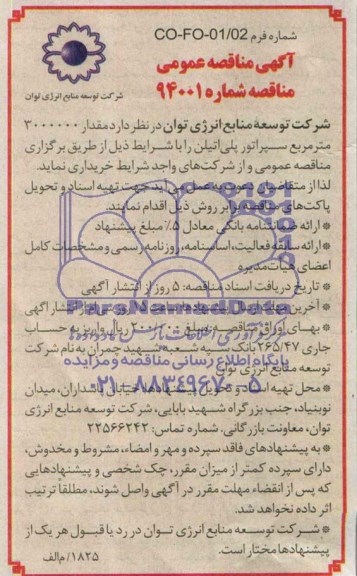 شماره فرم CO-FO-01/02
آگهی مناقصه عمومی
مناقصه شماره ۹۴۰۰۱
شرکت توسعه منابع انرژی توان
شرکت توسعهٔ منابع انرژی توان در نظر دارد مقدار ۳۰۰۰۰۰۰
مترمربع سپراتور پلی‌اتیلن را با شرایط ذیل از طریق برگزاری
مناقصه عمومی و از شرکت‌های واجد شرایط خریداری نماید.
لذا از متقاضیان دعوت به عمل می‌آید جهت تهیه اسناد و تحویل
پاکت‌های مناقصه برابر روش ذیل اقدام نمایند.
* ارائه ضمانتنامه بانکی معادل ۵٪ مبلغ پیشنهاد
* ارائه سابقه فعالیت، اساسنامه، روزنامه رسمی و مشخصات کامل
اعضای هیات‌مدیره
* تاریخ دریافت اسناد مناقصه: ۵ روز از انتشار آگهی
* آخرین مهلت ارسال پیشنهادها ساعت ۱۵ روز پس از انتشار آگهی
* بهای اوراق مناقصه به مبلغ ۲۰۰/۰۰۰ ریال واریز به حساب
جاری ۲۶۵/۴۷ بانک سپه شعبه شهید چمران به نام شرکت
توسعه منابع انرژی توان
* محل تهیه اسناد و تحویل پیشنهادها: خیابان پاسداران، میدان
نوبنیاد، جنب بزرگراه شهید بابایی، شرکت توسعه منابع انرژی
توان، معاونت بازرگانی. شماره تماس: ۲۲۵۶۶۲۴۲
* به پیشنهادهای فاقد سپرده و مهر و امضاء، مشروط و مخدوش،
دارای سپرده کمتر از میزان مقرر، چک شخصی و پیشنهادهایی
که پس از انقضاء مهلت مقرر در آگهی واصل شوند، مطلقاً ترتیب
اثر داده نخواهد شد.
* شرکت توسعه منابع انرژی توان در رد یا قبول هر یک از
پیشنهادها مختار است.
۱۸۲۵/م الف
ParsNamadData
پایگاه اطلاع رسانی مناقصه و مزایده
۰۲۱-۸۸۳۴۹۶۷۰-۵